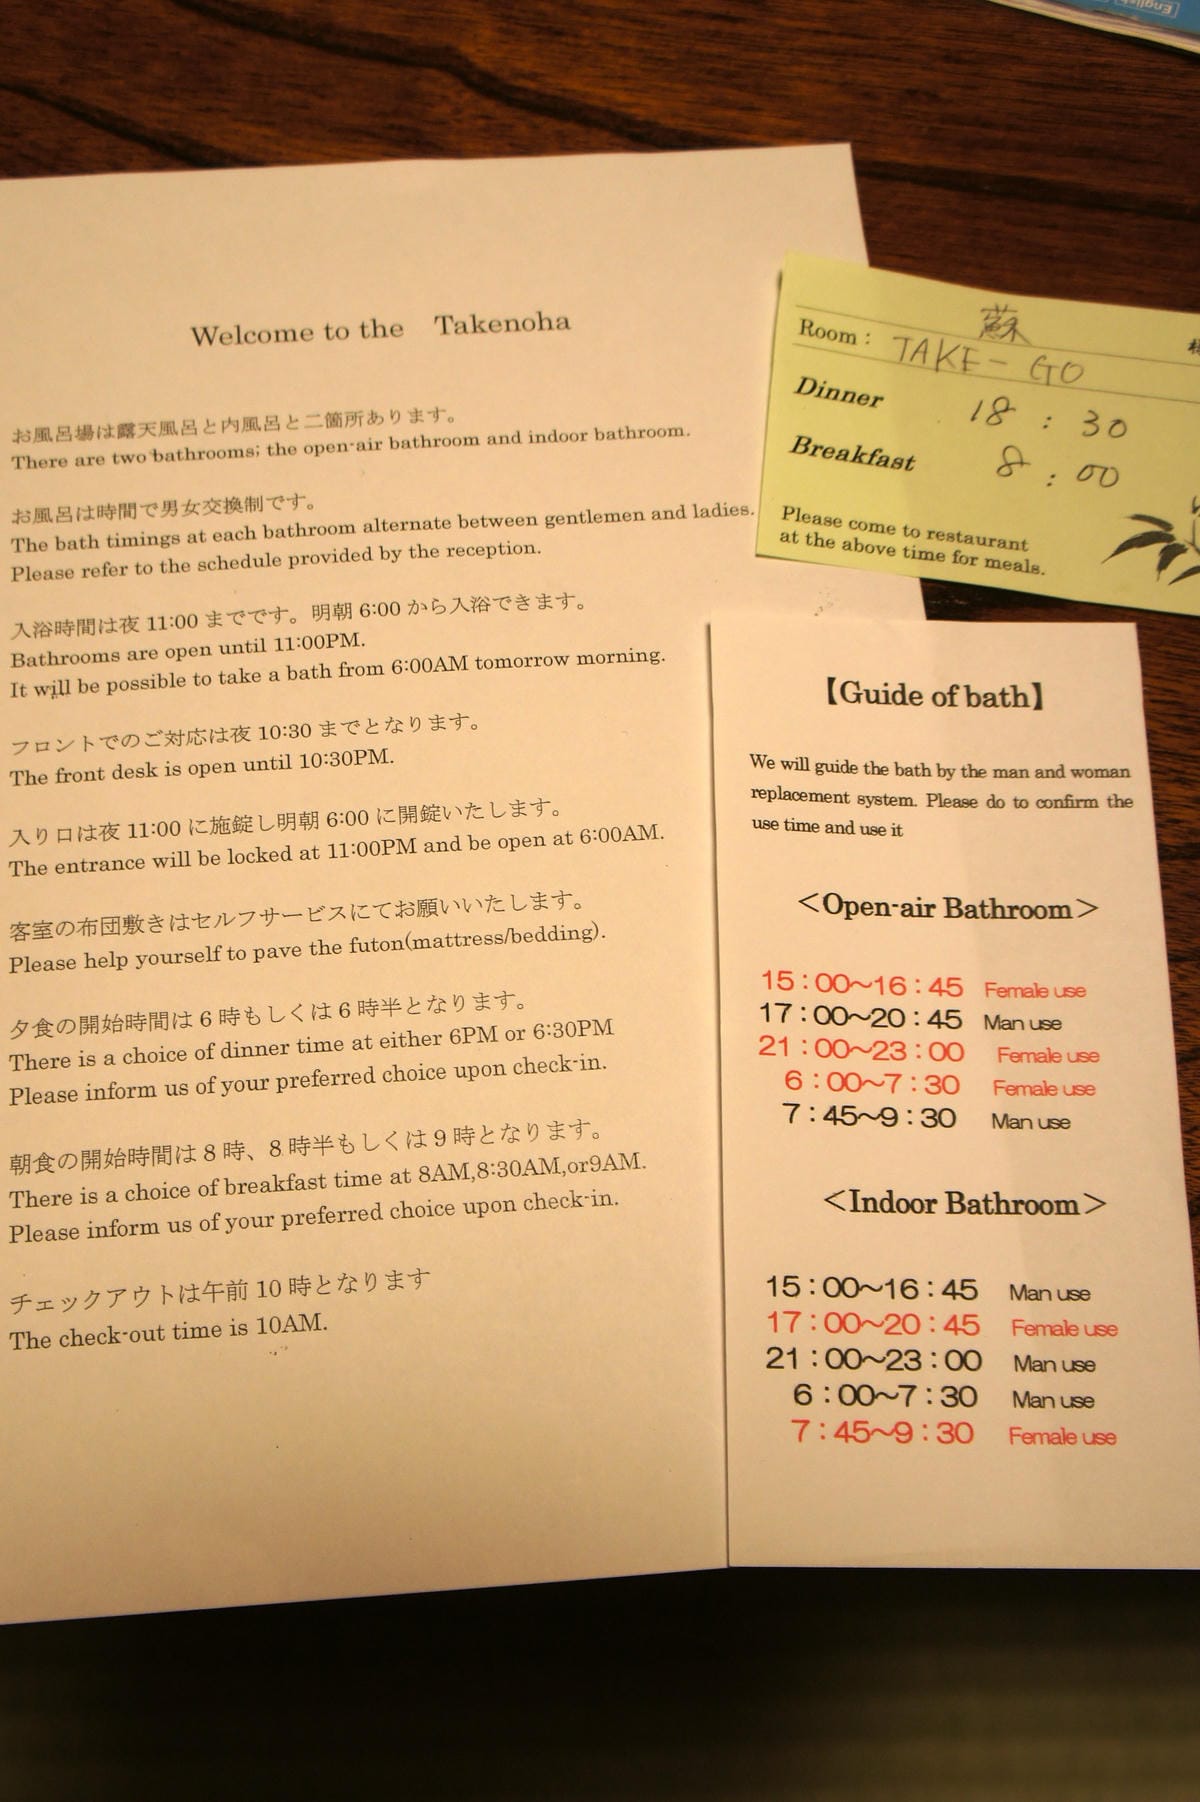 English
Welcome to the Takenoha
お風呂場は露天風呂と内風呂と二箇所あります。
There are two bathrooms; the open-air bathroom and indoor bathroom.
お風呂は時間で男女交換制です。
The bath timings at each bathroom alternate between gentlemen and ladies.
Please refer to the schedule provided by the reception.
入浴時間は夜 11:00 までです。明朝 6:00 から入浴できます。
Bathrooms are open until 11:00PM.
It will be possible to take a bath from 6:00AM tomorrow morning.
フロントでのご対応は夜 10:30 までとなります。
The front desk is open until 10:30PM.
入り口は夜 11:00 に施錠し明朝 6:00 に開錠いたします。
The entrance will be locked at 11:00PM and be open at 6:00AM.
客室の布団敷きはセルフサービスにてお願いいたします。
Please help yourself to pave the futon(mattress/bedding).
夕食の開始時間は 6 時もしくは 6 時半となります。
There is a choice of dinner time at either 6PM or 6:30PM
Please inform us of your preferred choice upon check-in.
朝食の開始時間は 8 時、8 時半もしくは 9 時となります。
There is a choice of breakfast time at 8AM,8:30AM,or9AM.
Please inform us of your preferred choice upon check-in.
チェックアウトは午前 10 時となります
The check-out time is 10AM.
蘇 様
Room : TAKE-GO
Dinner 18 : 30
Breakfast 8 : 00
Please come to restaurant
at the above time for meals.
【Guide of bath】
We will guide the bath by the man and woman
replacement system. Please do to confirm the
use time and use it
＜Open-air Bathroom＞
15：00～16：45 Female use
17：00～20：45 Man use
21：00～23：00 Female use
6：00～7：30 Female use
7：45～9：30 Man use
＜Indoor Bathroom＞
15：00～16：45 Man use
17：00～20：45 Female use
21：00～23：00 Man use
6：00～7：30 Man use
7：45～9：30 Female use